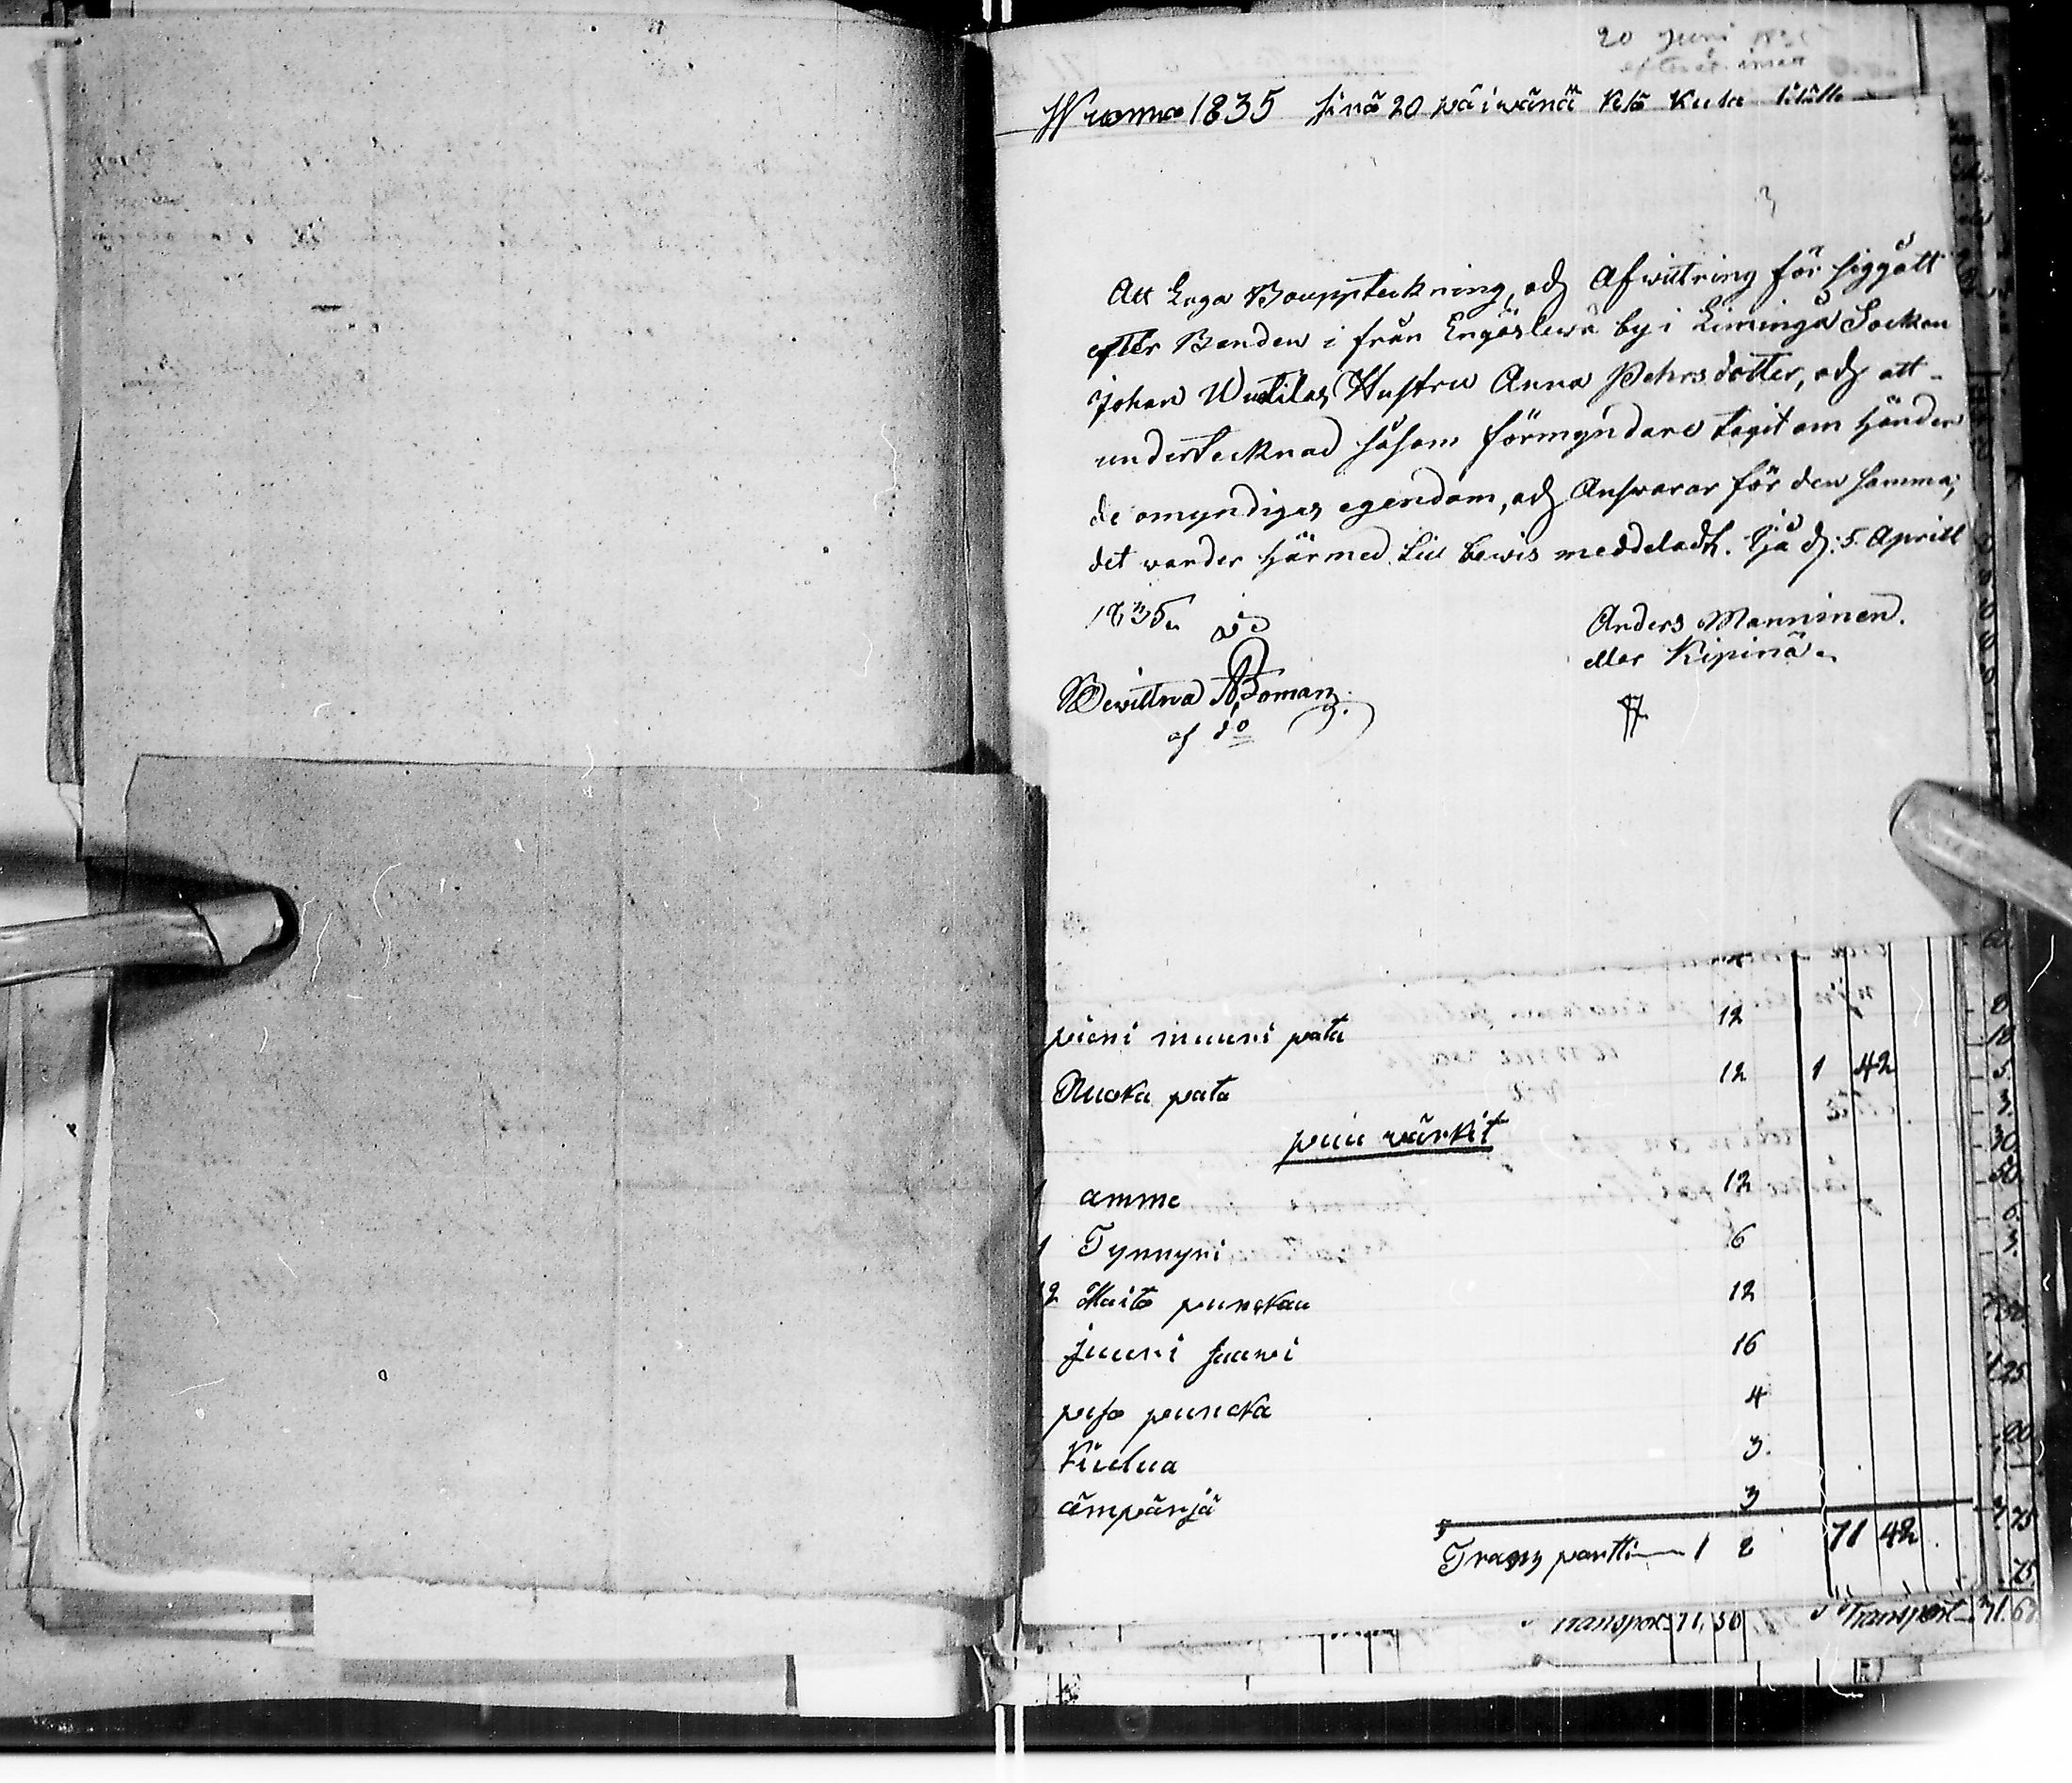 20 Juni
Wuonna 1835 sinä 20 päiwänä Kesä Kuta
Att Laga Bouppteckning, och Afwittring för siggått
efter Bonden i från Engëslewä by i Limingå Socken
Johan Uutilas Hustru Anna Pehrs dotter, och att
undertecknad såsom förmyndare tagit om händer
de omyndigas egendom, och Answarar för den samma;
det warder härmed. til bewis meddeladt. Ijå d: 5. Aprill
1835.
Anders Manninen.
eller Kipinä.
Bewittna ABoman.
af do
pieni muuri pata 12
Ruoka pata 12 1 42
puu värkit
1 amme 12
1 Tynnyri 6
12 Maito punckaa 12
juuri saawi 16
peso puncka 4
3 Kiulua 3.
ämpäriä 3
Trans portti 1 8 71 42
Transport 71,50
Transport